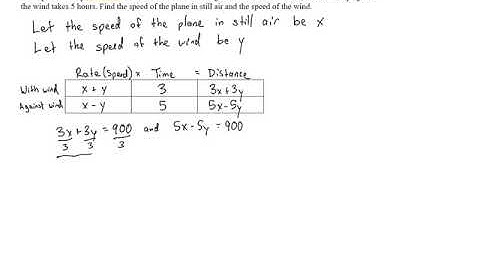 the wind takes 5 hours. Find the speed of the plane in still air and the speed of the wind.
Let the speed of the plane in still air be x
Let the speed of the wind be y
Rate (Speed) x Time = Distance
With wind x + y 3 3x + 3y
Against wind x - y 5 5x - 5y
3x + 3y = 900 and 5x - 5y = 900
3 3 3